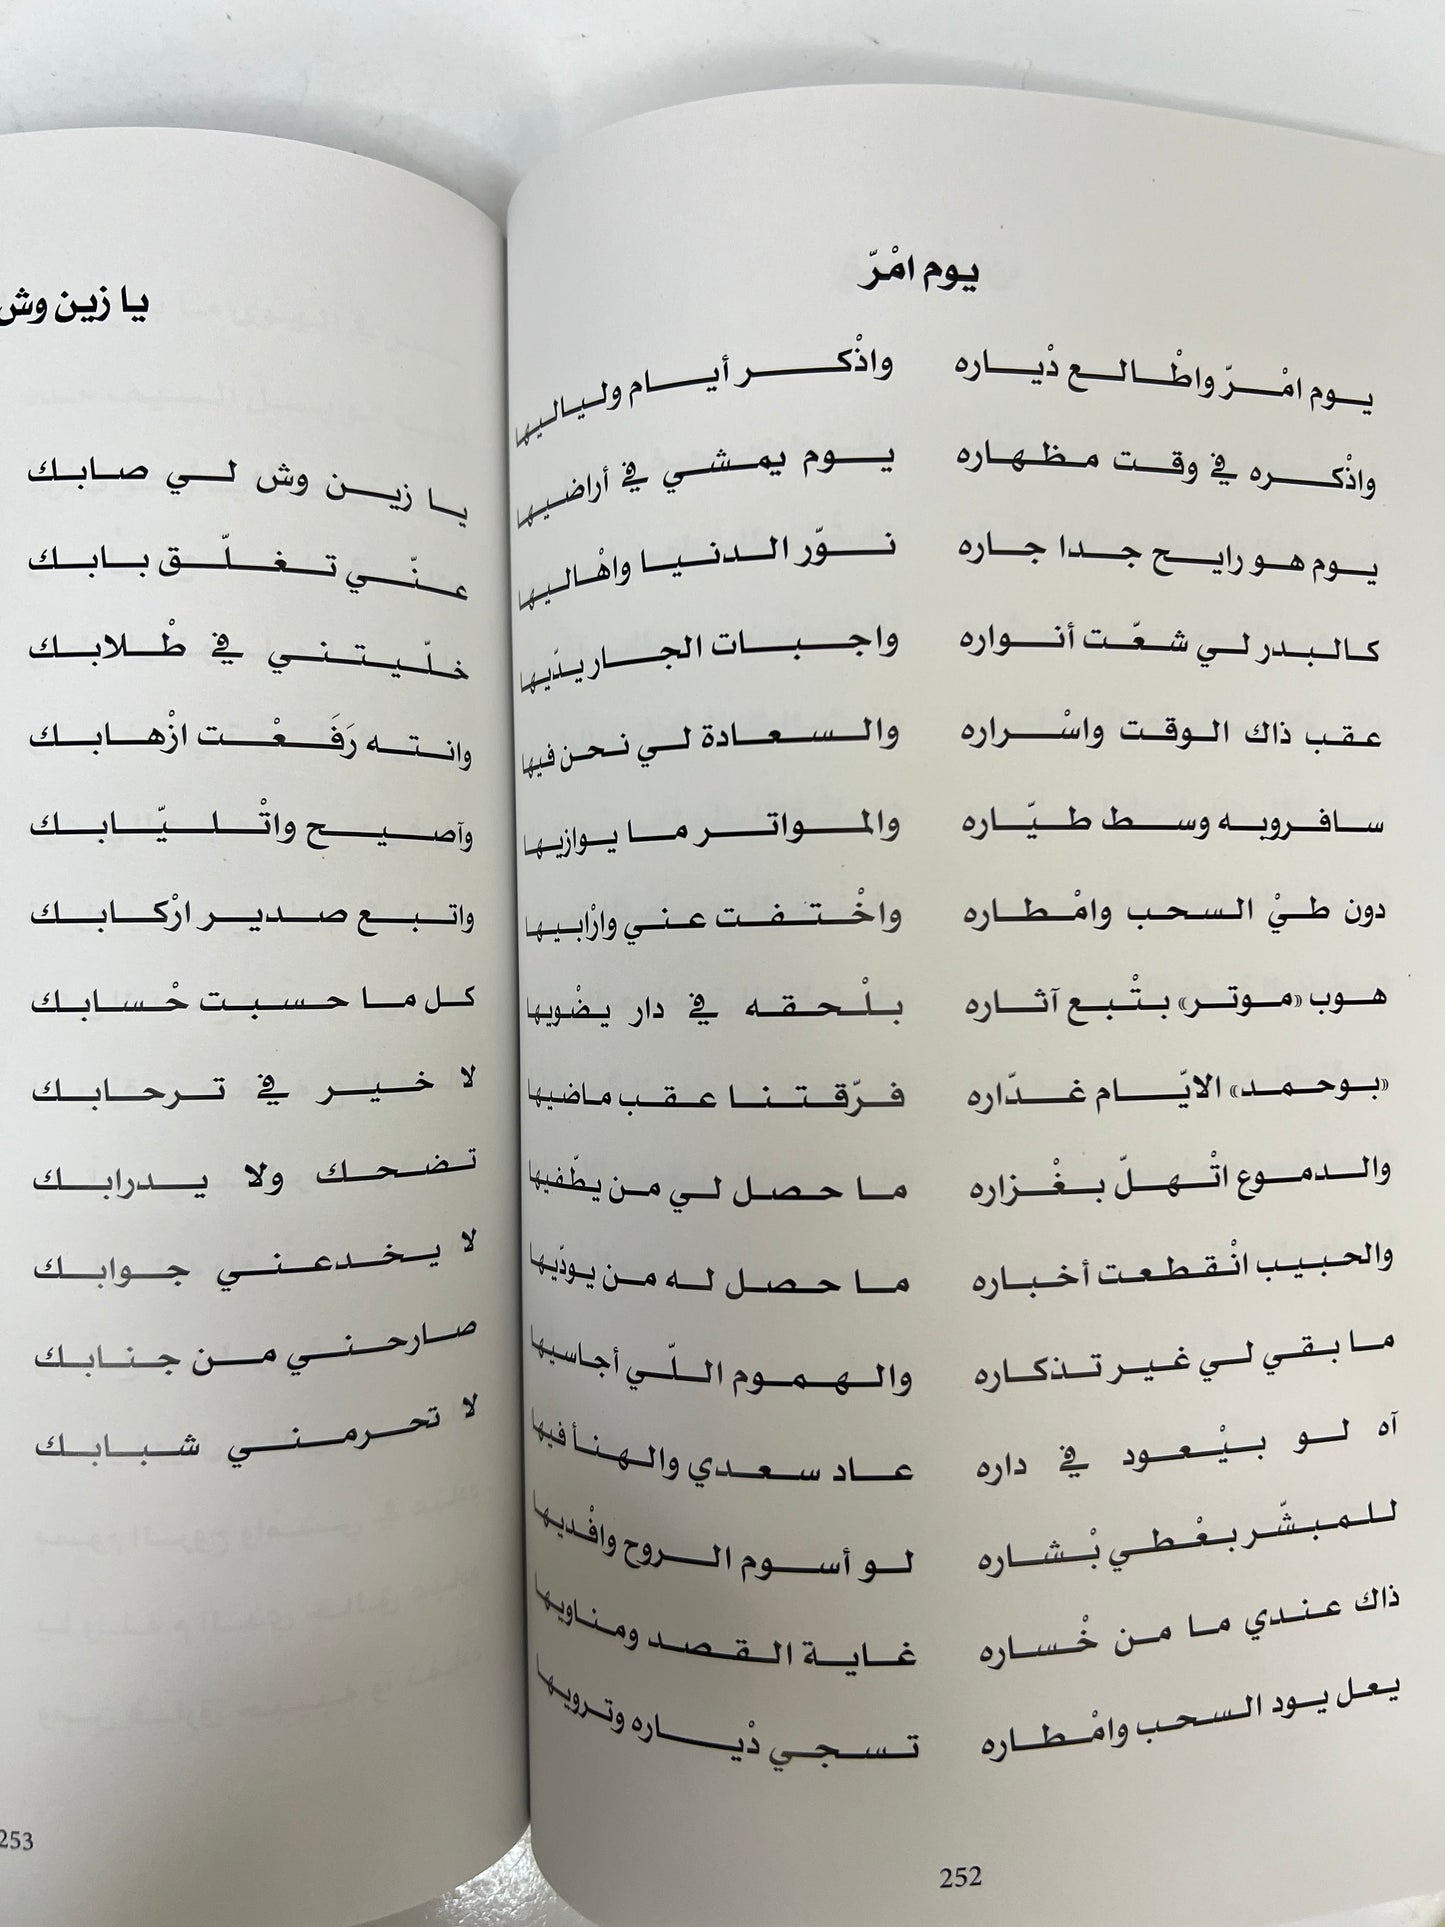 يوم امْرّ
يوم امْرّ واطْالع دْياره واذْكر أيام ولياليها
واذْكره في وقت مظهاره يوم يمشي في أراضيها
يوم هو رايح جدا جاره نوّر الدنيا واهْاليها
كالبدر لي شعّت أنواره واجبات الجار يدّيها
عقب ذاك الوقت واسْراره والسعادة لي نحن فيها
سافروبه وسط طيّاره والمواتر ما يوازيها
دون طيْ السحب وامْطاره واخْتفت عني وارْابيها
هوب «موتر» بتْبع آثاره بلْحقه في دار يضْويها
«بوحمد» الايّام غدّاره فرّقتنا عقب ماضيها
والدموع اتْهلّ بغْزاره ما حصل لي من يطّفيها
والحبيب انْقطعت أخباره ما حصل له من يودّيها
ما بقي لي غير تذكاره والهموم اللّي أجاسيها
آه لو بيْعود في داره عاد سعدي والهنا فيها
للمبشّر بعْطي بْشاره لو أسوم الروح وافْديها
ذاك عندي ما من خْساره غاية القصد ومناويها
يعل يود السحب وامْطاره تسجي دْياره وترويها
252
يا زين وش
يا زين وش لي صابك
عنّي تغلّق بابك
خلّيتني في طْلابك
وانته رَفَعْت ازْهابك
وآصيح واتْليّابك
واتبع صدير ارْكابك
كل ما حسبت حْسابك
لا خير في ترحابك
تضحك ولا يدرابك
لا يخدعني جوابك
صارحني من جنابك
لا تحرمني شبابك
253